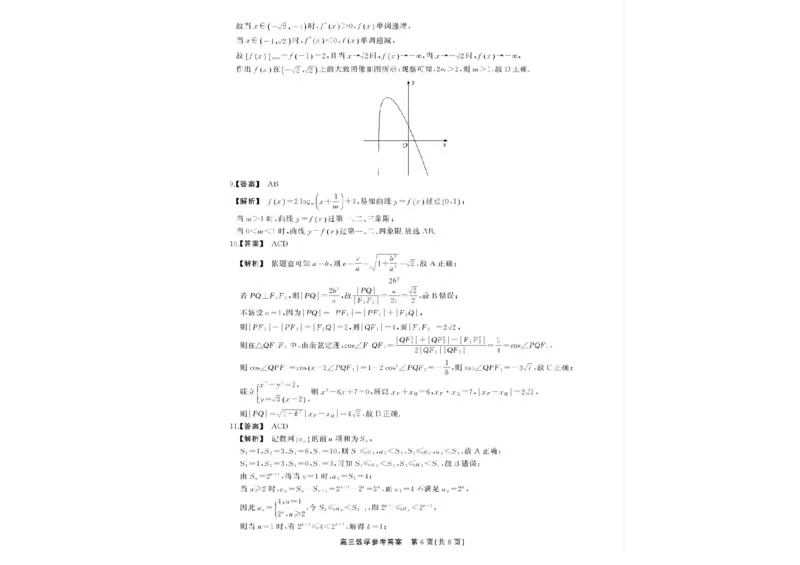 故当 x∈(-√2,-1)时,f′(x)>0,f(x)单调递增,
当 x∈(-1,√2)时,f′(x)<0,f(x)单调递减,
故[f(x)]max=f(-1)=2,且当 x→√2时,f(x)→-∞,当 x→-√2时,f(x)→-∞,
作出 f(x)在(-√2,√2)上的大致图像如图所示;观察可知,2m>2,则 m>1.故 D 正确.
y
O x
9.【答案】 AB
【解析】 f(x)=2log_m(x+1/m)+3,易知曲线 y=f(x)过点(0,1);
当 m>1 时,曲线 y=f(x)过第一、二、三象限;
当 0<m<1 时,曲线 y=f(x)过第一、二、四象限.故选 AB.
10.【答案】 ACD
【解析】 依题意可知 a=b,则 e=c/a=√(1+b²/a²)=√2,故 A 正确;
若 PQ⊥F₁F₂,则|PQ|=2b²/a,故|PQ|/|F₁F₂|=(2b²/a)/2c=√2/2,故 B 错误;
不妨设 a=1,因为|PQ|=|PF₁|=|PF₂|+|F₂Q|,
则|PF₁|-|PF₂|=|F₂Q|=2,则|QF₁|=4,而|F₁F₂|=2√2,
则在△QF₁F₂ 中,由余弦定理,cos∠F₁QF₂=(|QF₁|²+|QF₂|²-|F₁F₂|²)/(2|QF₁||QF₂|)=3/4=cos∠PQF₁,
则 cos∠QPF₁=cos(π-2∠PQF₁)=1-2cos²∠PQF₁=-1/8,则 tan∠QPF₁=-3√7,故 C 正确;
联立{x²-y²=2, y=√3(x-2), 则 x²-6x+7=0,所以 x_P+x_Q=6,x_P·x_Q=7,|x_P-x_Q|=2√2,
则|PQ|=√(1+k²)|x_P-x_Q|=4√2,故 D 正确.
11.【答案】 ACD
【解析】 记数列{aₙ}的前 n 项和为 Sₙ,
由 Sₙ=2ⁿ⁺¹,得当 n=1 时,a₁=S₁=4;
当 n≥2 时,aₙ=Sₙ-Sₙ₋₁=2ⁿ⁺¹-2ⁿ=2ⁿ,而 a₁=4 不满足 aₙ=2ⁿ,
因此 aₙ={4,n=1 2ⁿ,n≥2
则当 n=1 时,有 2ᵏ⁺¹≤4<2ᵏ⁺²,解得 k=1;
高三数学参考答案 第 6 页(共 8 页)